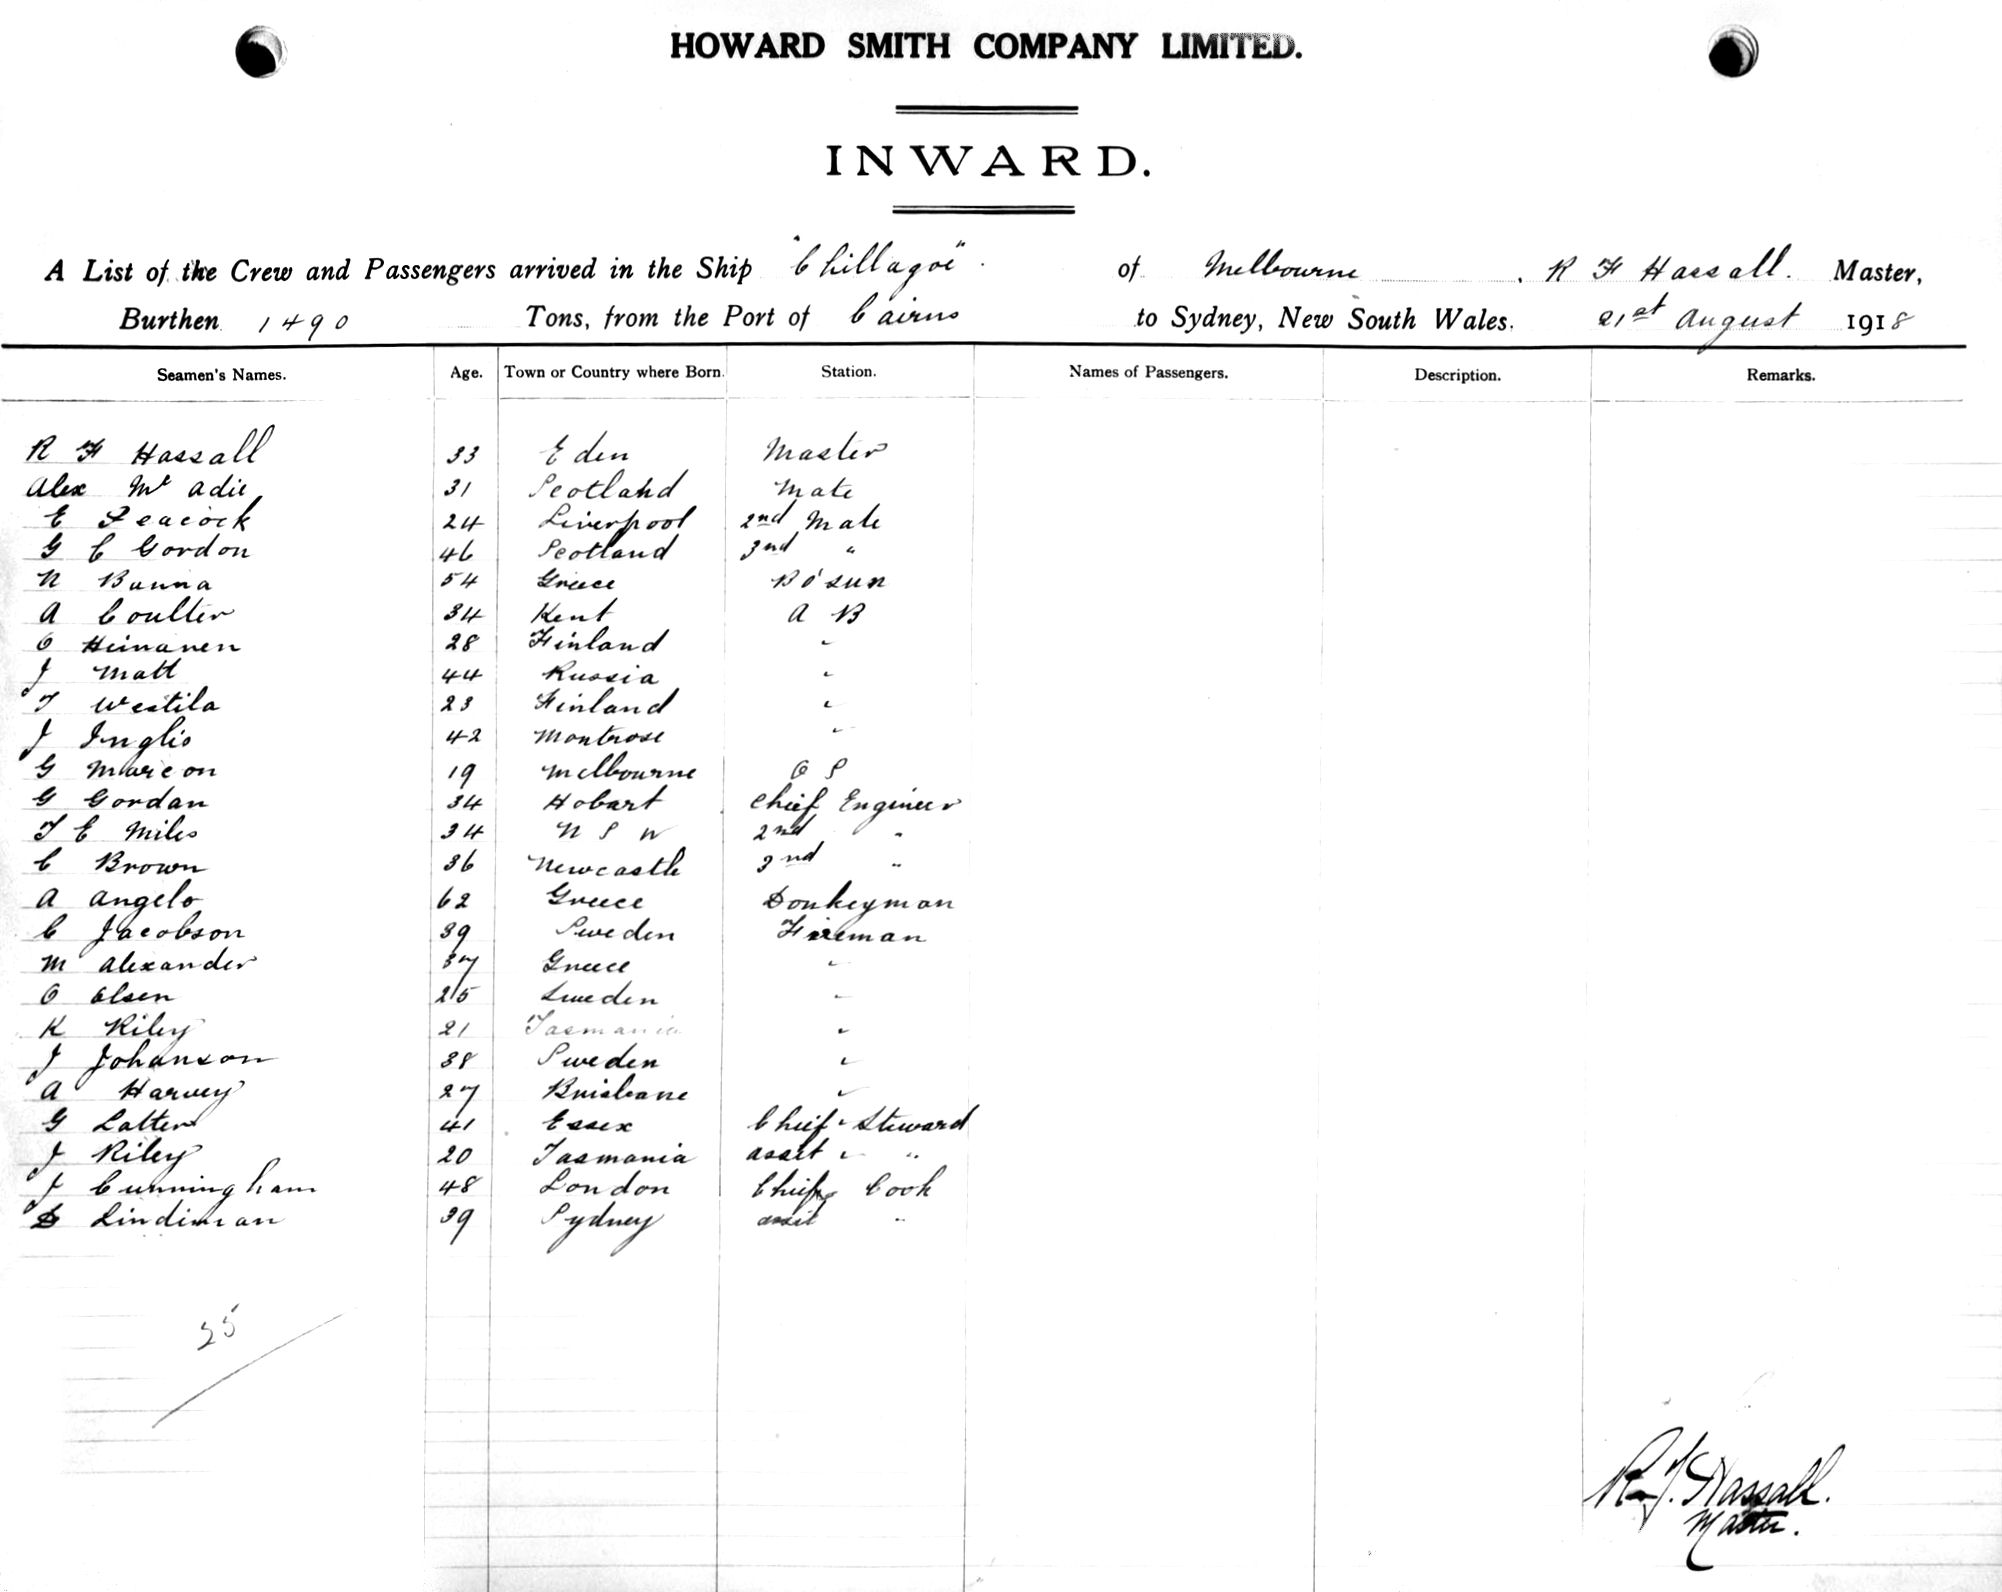 HOWARD SMITH COMPANY LIMITED.
INWARD.
A List of the Crew and Passengers arrived in the Ship "Chillagoe". of Melbourne , R F Hassall. Master,
Burthen 1490 Tons, from the Port of Cairns to Sydney, New South Wales. 21st August 1918
Seamen's Names. Age. Town or Country where Born. Station. Names of Passengers. Description. Remarks.
R F Hassall 33 Eden Master
Alex Mc Adie 31 Scotland Mate
E Peacock 24 Liverpool 2nd Mate
G C Gordon 46 Scotland 3nd "
N Banna 54 Greece Bo'sun
A Coulter 34 Kent A B
O Heinanen 28 Finland "
J Matt 44 Russia "
T Westila 23 Finland "
J Inglis 42 Montrose "
G Marcon 19 Melbourne O S
G Gordan 34 Hobart Chief Engineer
T E Miles 34 N S W 2nd "
C Brown 36 Newcastle 3nd "
A Angelo 62 Greece Donkeyman
C Jacobson 39 Sweden Fireman
M Alexander 37 Greece "
O Olsen 25 Sweden "
K Riley 21 Tasmania "
J Johanson 38 Sweden "
A Harvey 27 Brisbane "
G Latter 41 Essex Chief Steward
J Riley 20 Tasmania asst "
J Cunningham 48 London Chief Cook
D Lindiman 39 Sydney asst "
25
R.F. Hassall.
Master.